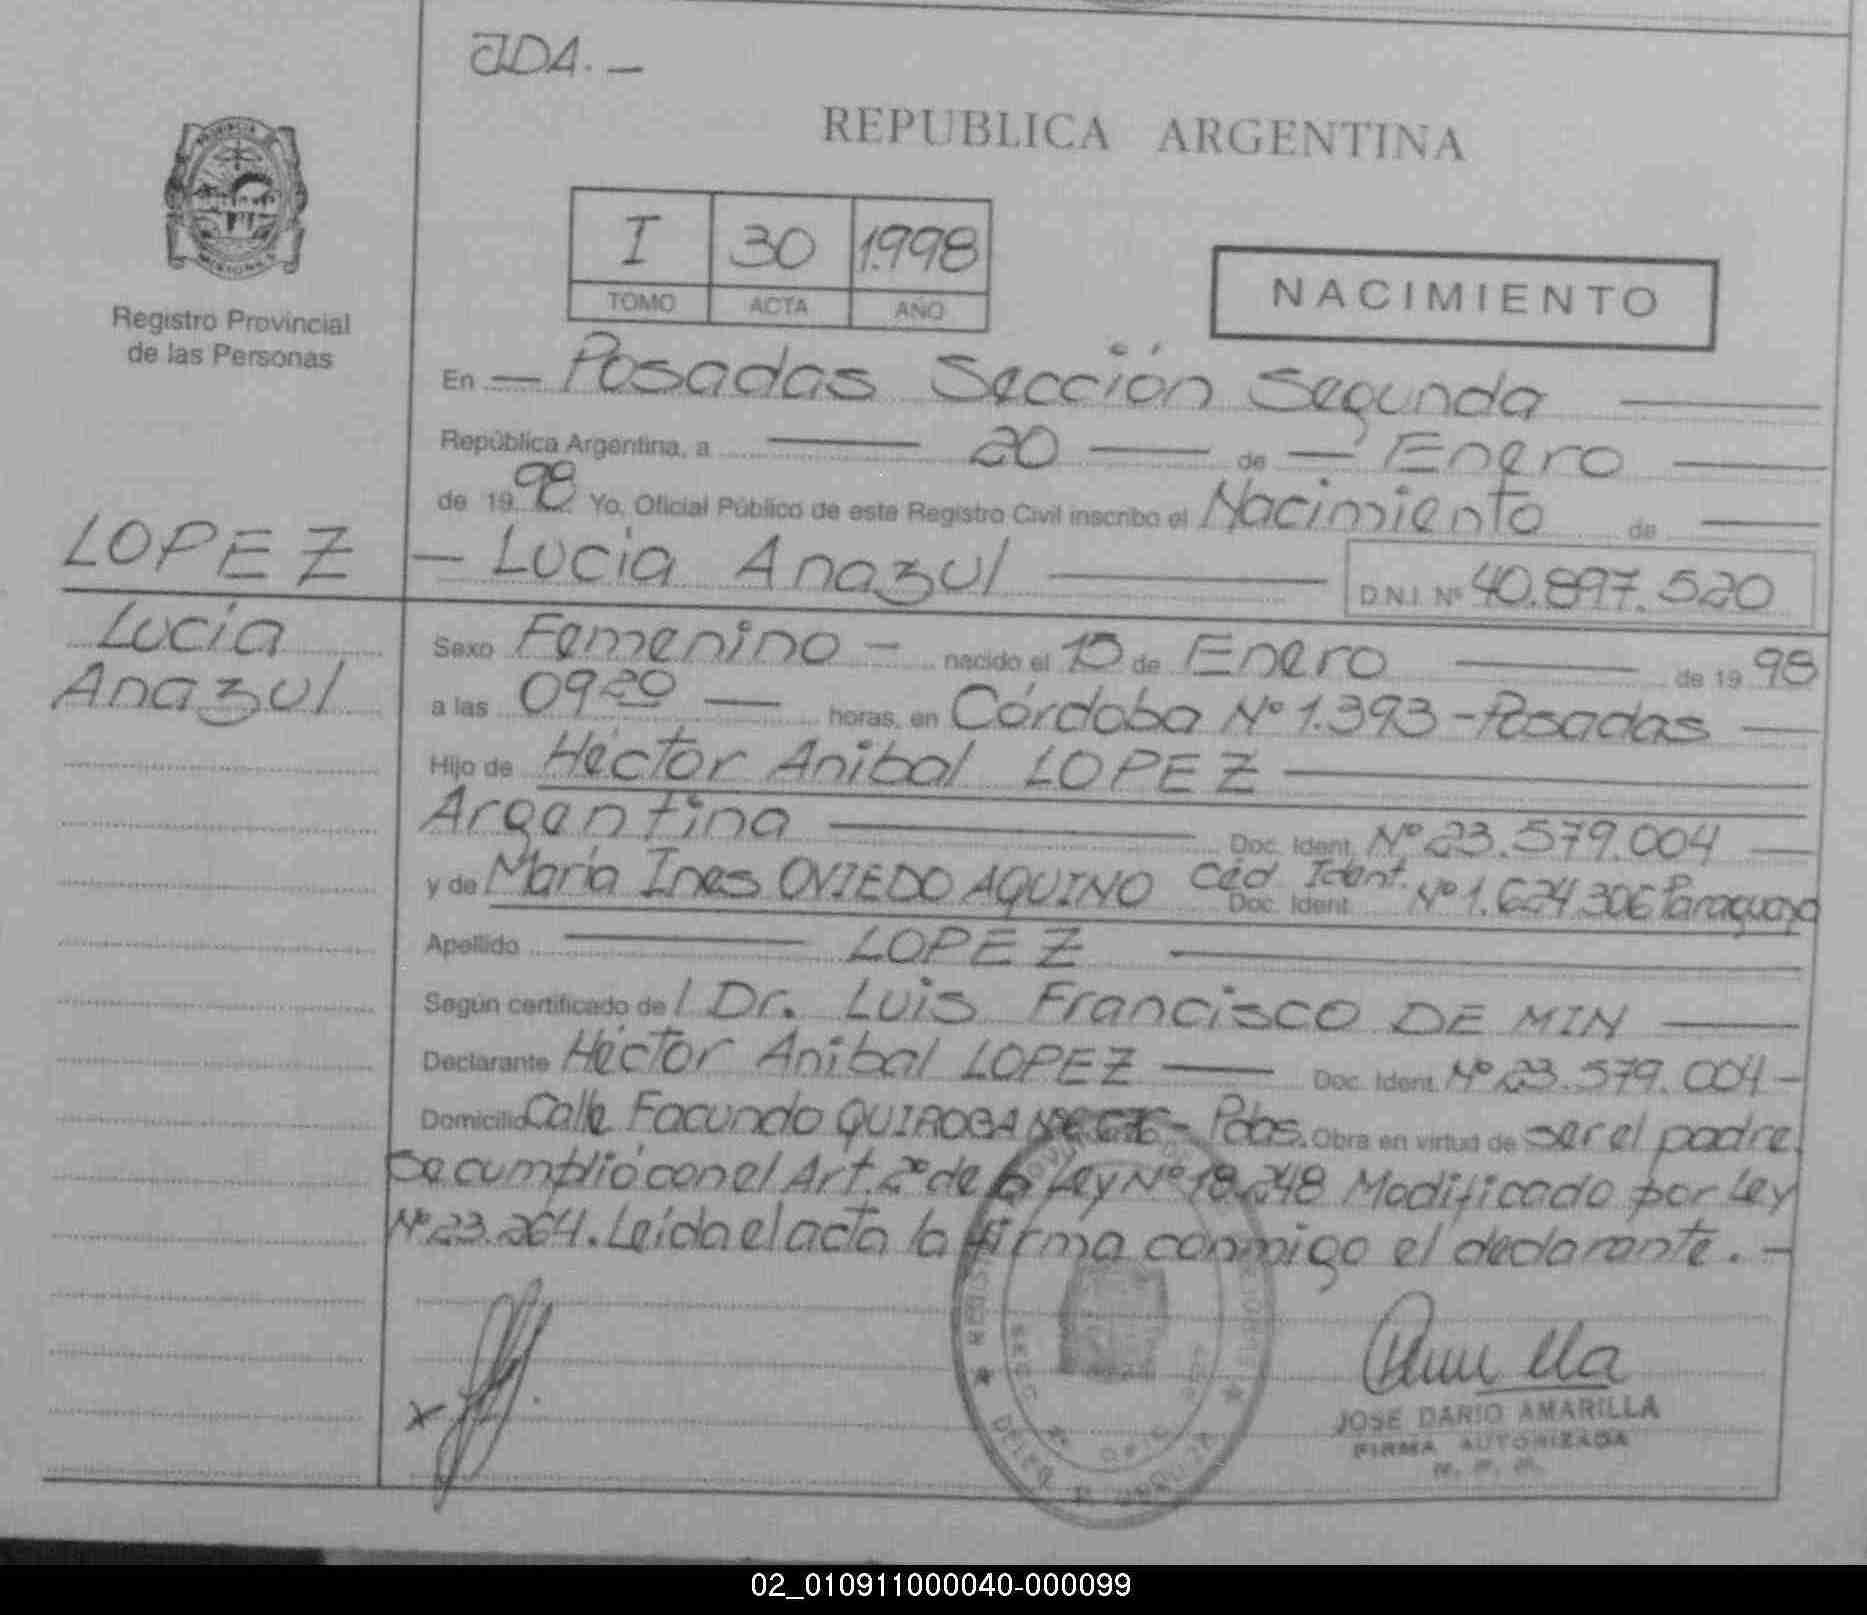 JDA. —
REPUBLICA ARGENTINA
PROVINCIA DE
MISIONES
Registro Provincial
de las Personas
I 30 1.998
TOMO ACTA AÑO
NACIMIENTO
En — Posadas Sección Segunda —
República Argentina, a — 20 — de — Enero —
de 19 98 Yo, Oficial Público de este Registro Civil inscribo el Nacimiento de —
LOPEZ
Lucia
Anazul
— Lucia Anazul — D.N.I. Nº 40.897.520
Sexo Femenino — nacido el 15 de Enero — de 19 98
a las 09 20 — horas, en Córdoba Nº 1.393 - Posadas —
Hijo de Héctor Anibal LOPEZ —
Argentina — Doc. Ident. Nº 23.579.004 —
y de María Ines OVIEDO AQUINO Céd. Ident. Doc. Ident. Nº 1.624.306 Paraguaya
Apellido — LOPEZ —
Según certificado de l Dr. Luis Francisco DE MIN —
Declarante Héctor Anibal LOPEZ — Doc. Ident. Nº 23.579.004 -
Domicilio Calle Facundo QUIROGA - Pdas. Obra en virtud de ser el padre.
Se cumplió con el Art. 2º de la Ley Nº 18.248 Modificado por Ley
Nº 23.264. Leída el acta la firma conmigo el declarante. -
x
JOSE DARIO AMARILLA
FIRMA AUTORIZADA
02_010911000040-000099